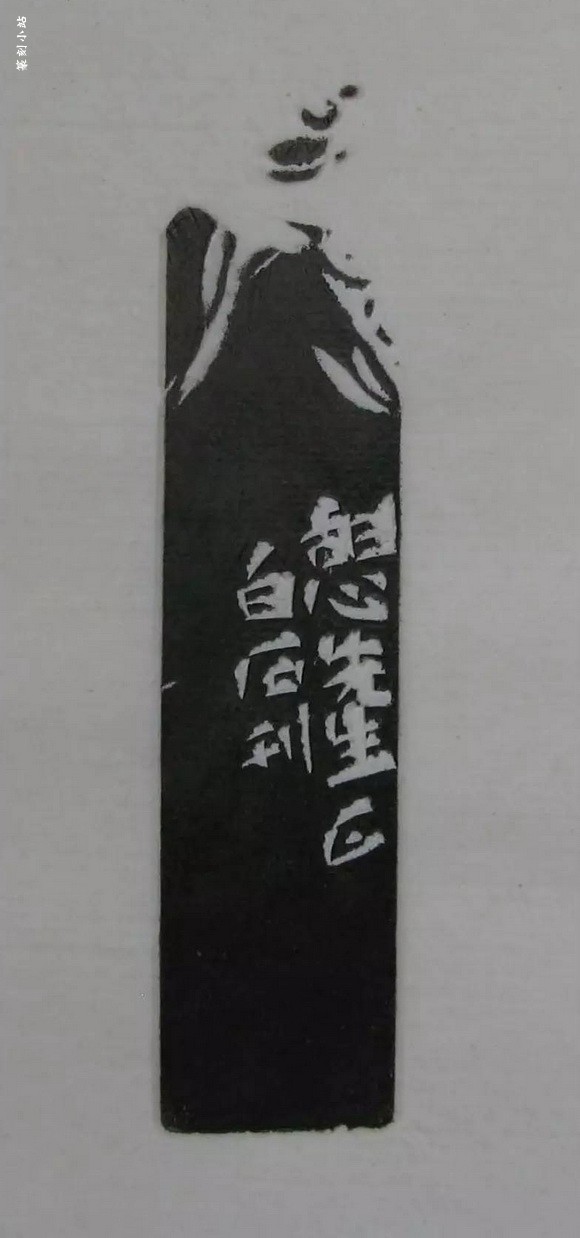 先生正
白石刊
篆刻小站